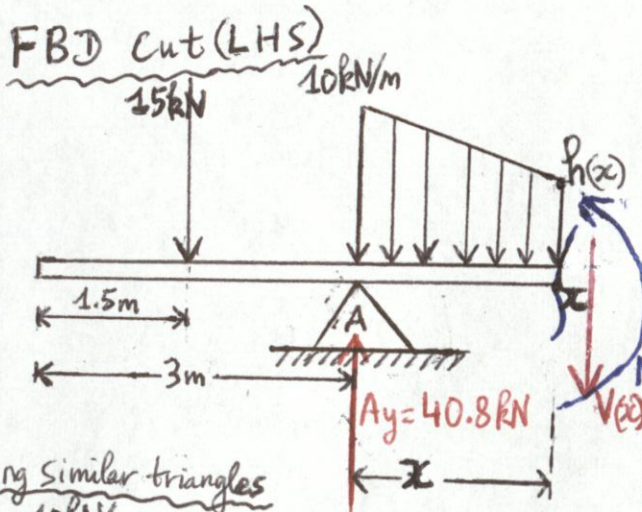 FBD Cut (LHS)
15kN
10kN/m
h(x)
1.5m
A
x
3m
Ay=40.8kN
V(x)
x
ng Similar triangles